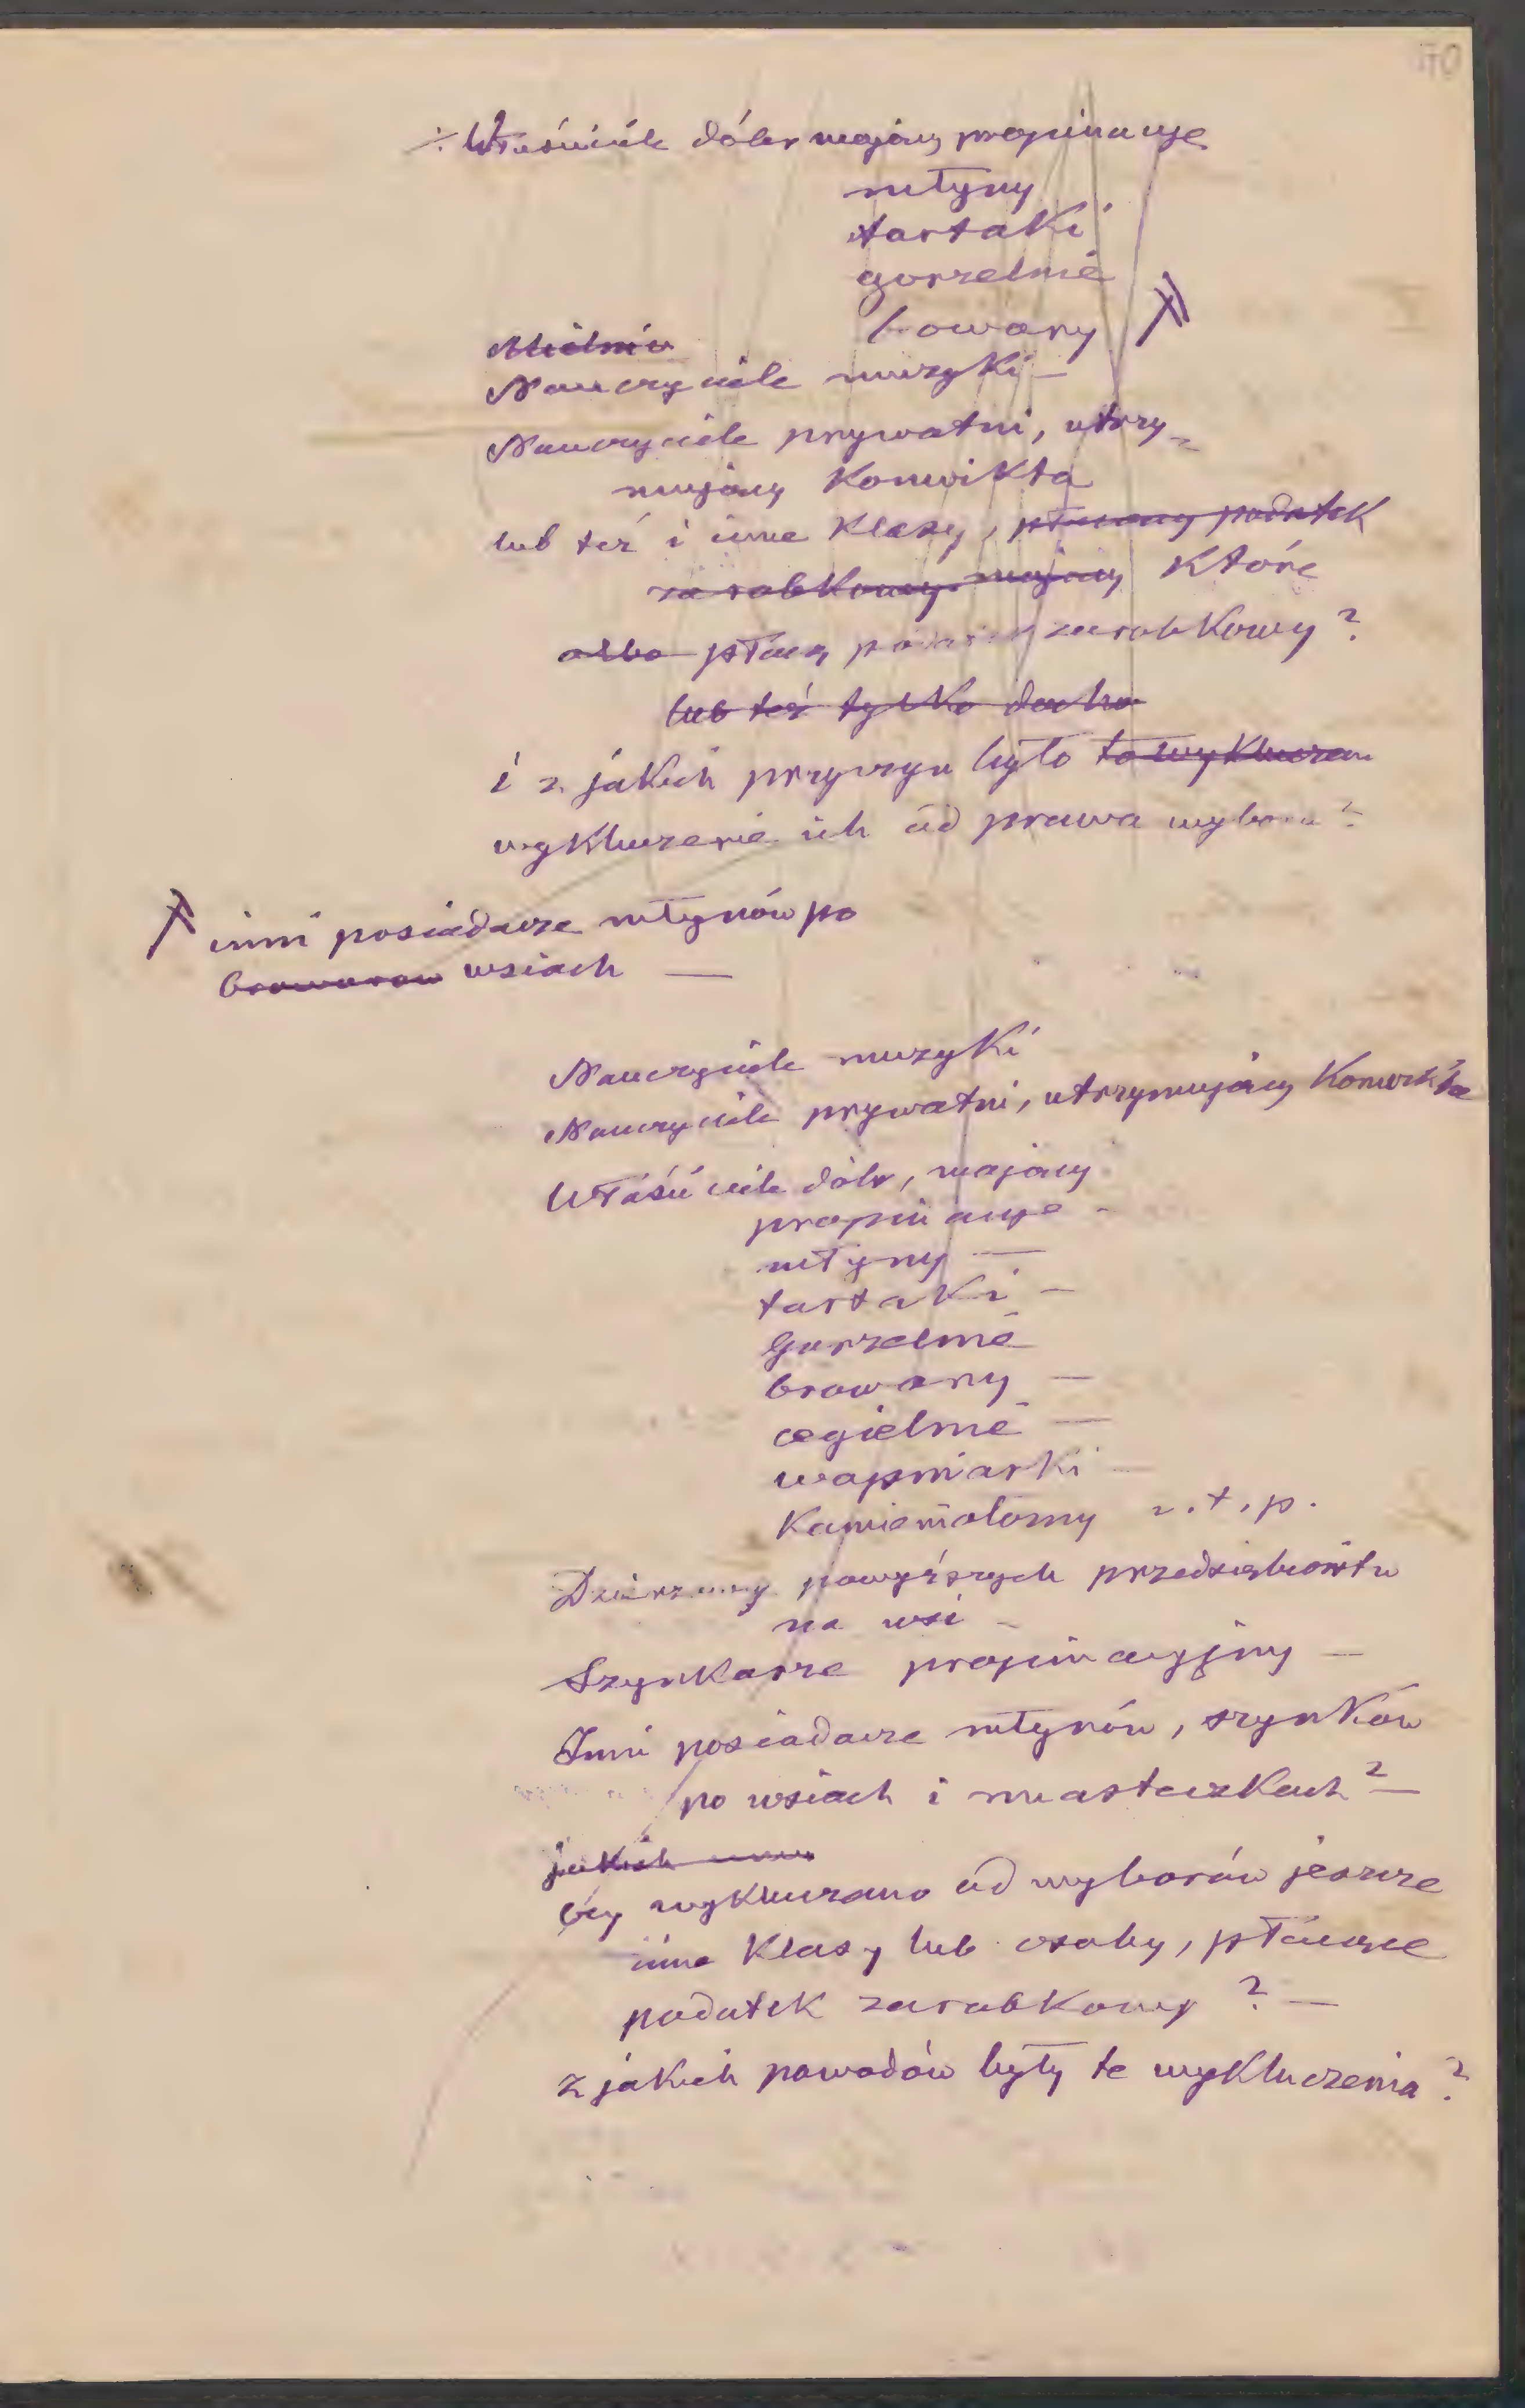 40
∴ Właściciele dóbr mający propinacye
młyny
tartaki
gorzelnie
browary
Nauczyciele muzyki —
Nauczyciele prywatni, utrzy-
mujący Konwikta
lub też i inne Klasy, płacący podatek
zarobkowy mający które
albo płacą podatek zarobkowy?
lub też tylko docho
i z jakich przyczyn było to wykluczen
wykluczenie ich od prawa wyboru?
inni posiadacze młynów po
browarów wsiach —
Nauczyciele muzyki
Nauczyciele prywatni, utrzymujący Konwikta
Właściciele dóbr, mający
propinacye -
młyny —
tartaki —
Gorzelnie
browary —
cegielnie —
wapniarki —
Kamieniołomy i. t. p.
Dzierżawcy powyższych przedsiębiorstw
na wsi —
Szynkarze propinacyjny —
Inni posiadacze młynów, szynków
po wsiach i miasteczkach? —
jakich
czy wykluczano od wyborów jeszcze
inne Klasy lub osoby, płacące
podatek zarobkowy? —
z jakich powodów były te wykluczenia?